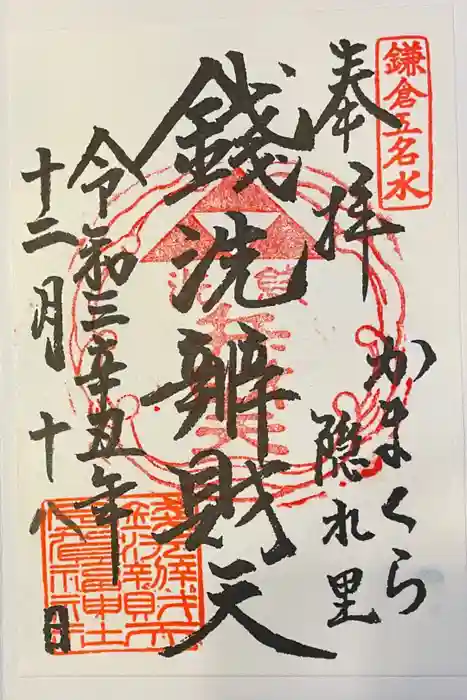 鎌倉五名水
奉拝
かまくら
隠れ里
銭洗辧財天
令和三辛丑年
十二月十八日